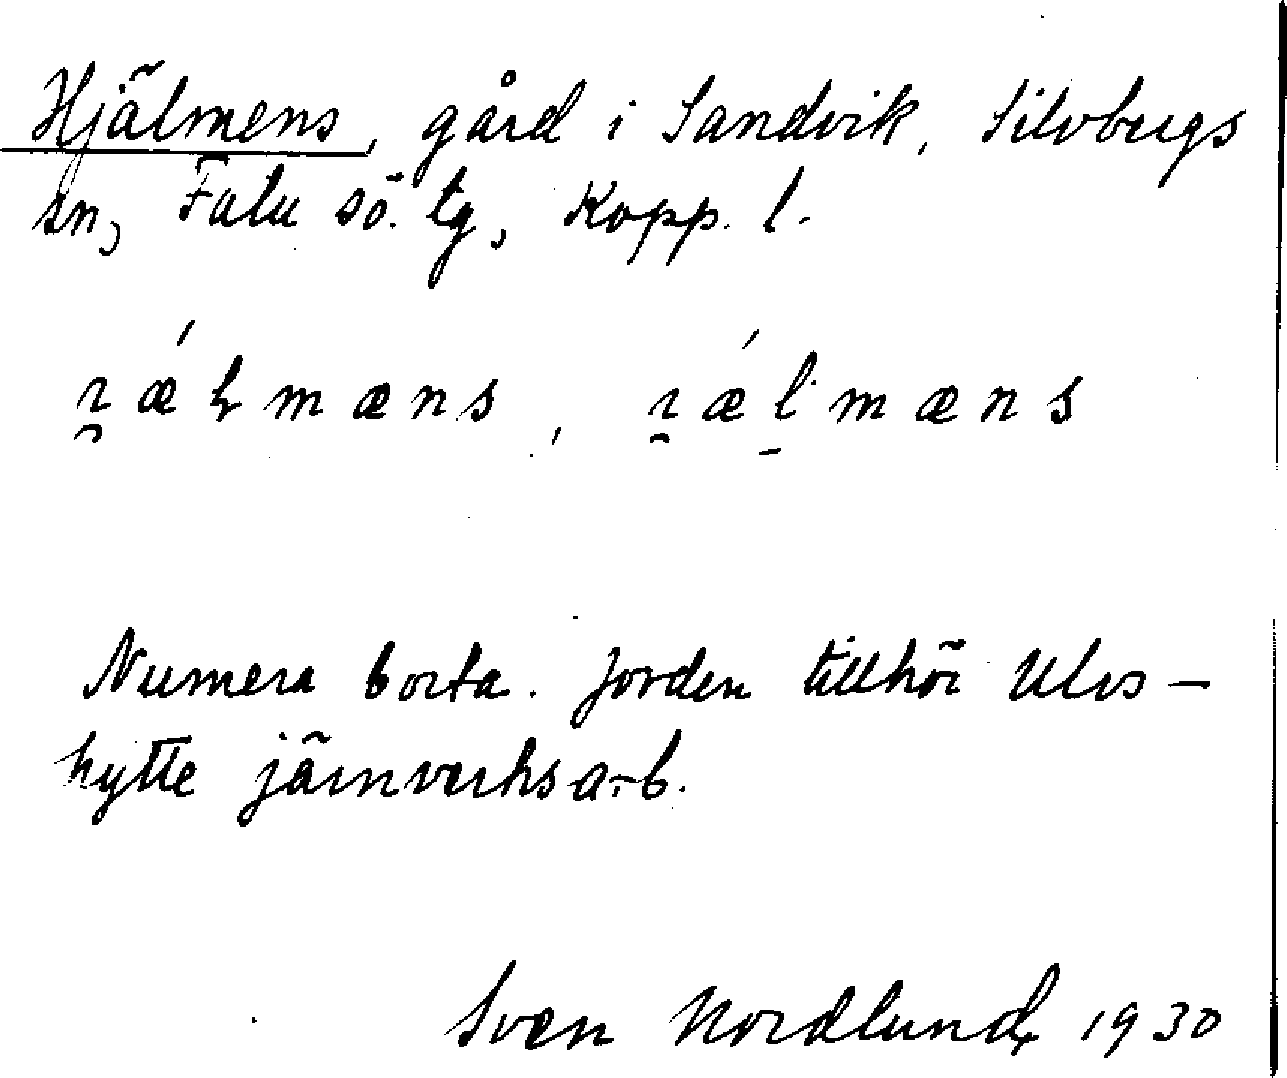 Hjälmens, gård i Sandvik, Silvbergs
sn, Falu sö. tg, Kopp. l.
Numera borta. Jorden tillhör Ulvs-
hytte järnverksarb.
Sven Nordlund, 1930